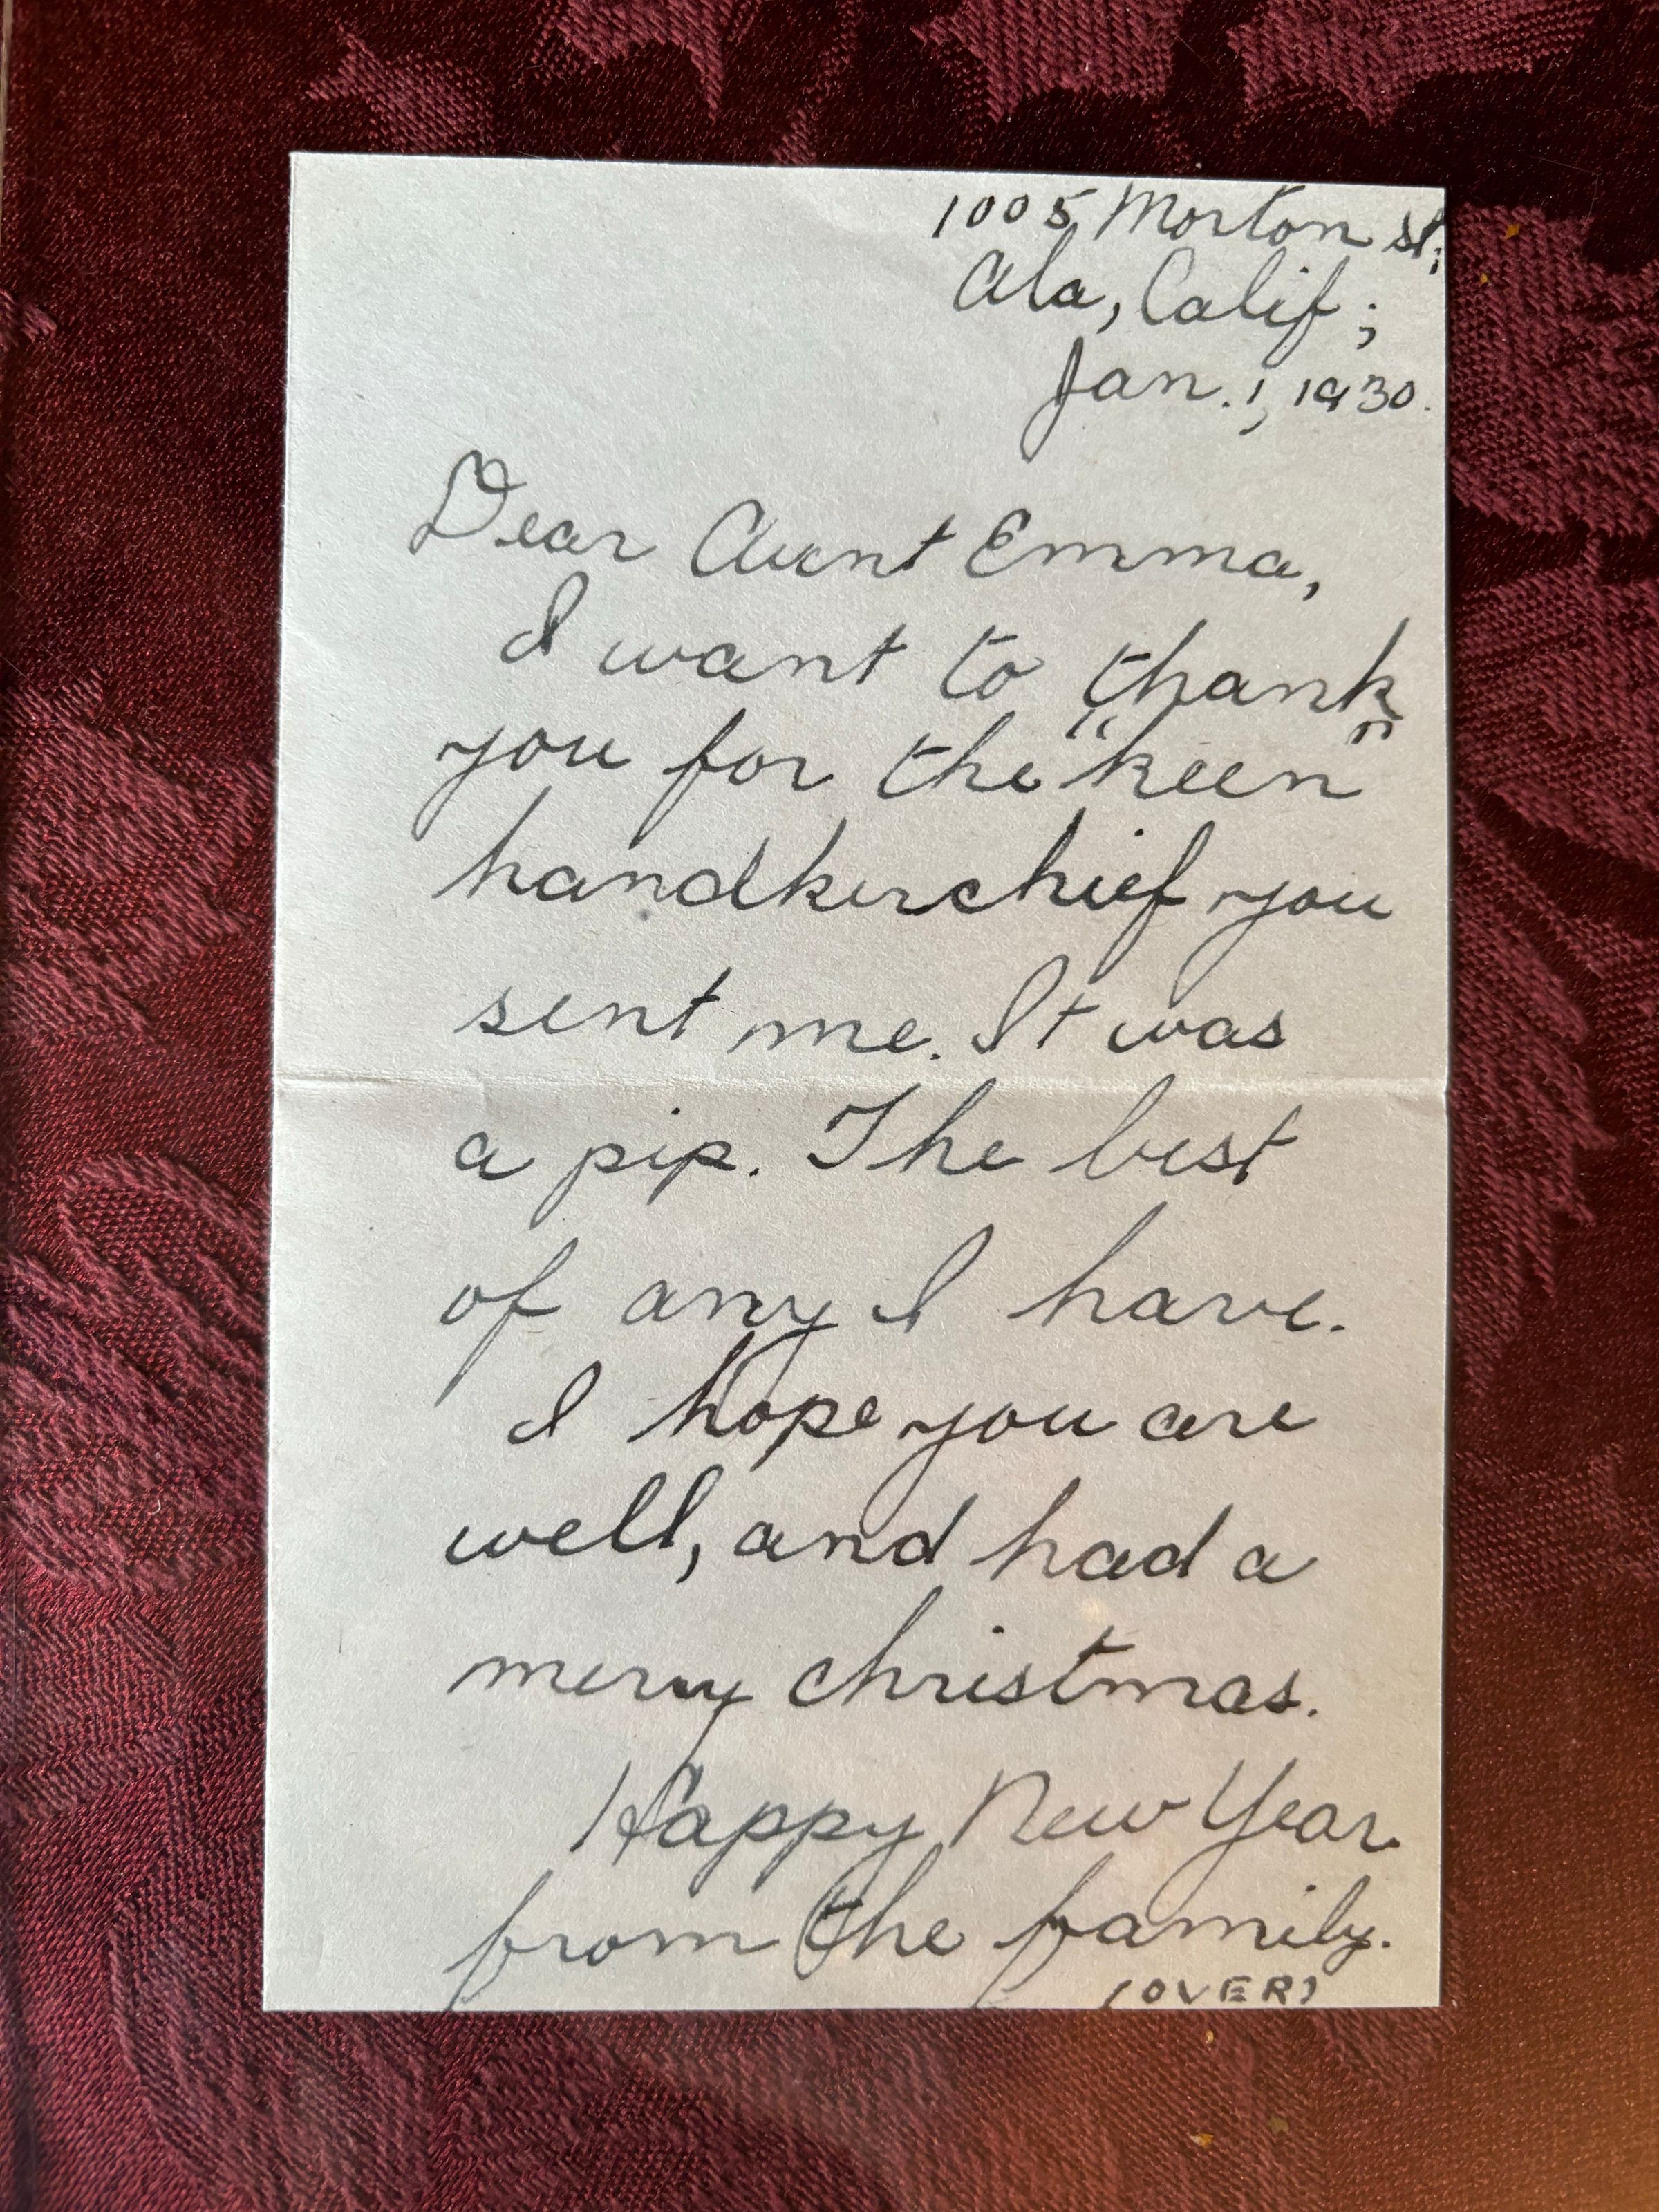 1005 Morton St;
Ala, Calif;
Jan. 1, 1930.
Dear Aunt Emma,
I want to thank
you for the "keen"
handkerchief you
sent me. It was
a pip. The best
of any I have.
I hope you are
well, and had a
merry christmas.
Happy New Year
from the family.
(OVER)